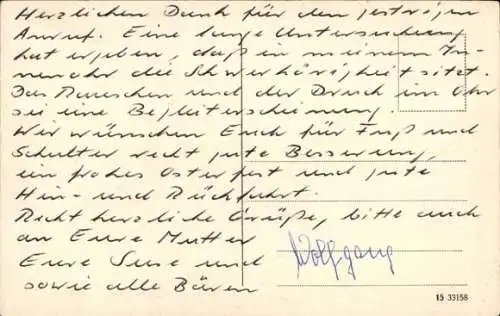 Herzlichen Dank für den gestrigen
Anruf. Eine lange Untersuchung
hat ergeben, daß in meinem In-
nenohr die Schwerhörigkeit sitzt.
Das Rauschen und der Druck im Ohr
sie eine Begleiterscheinung.
Wir wünschen Euch für Fuß und
Schulter recht gute Besserung,
ein frohes Osterfest und gute
Hin- und Rückfahrt.
Recht herzliche Grüße, bitte auch
an Eure Mutter
Eure Suse und Wolfgang
sowie alle Bären
15 33158